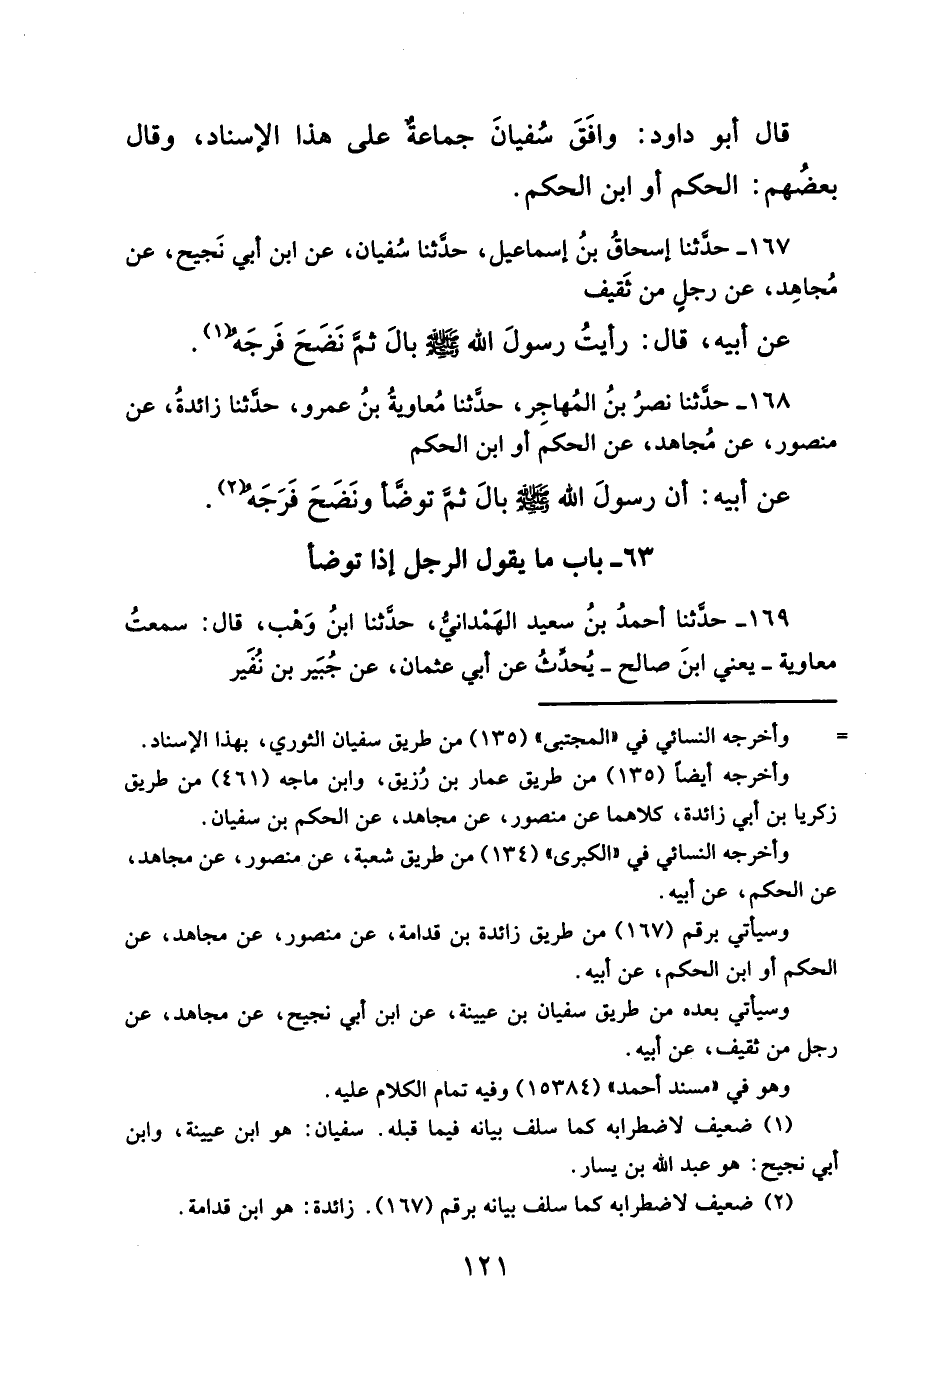 قال أبو داود: وافَقَ سُفيانَ جماعةٌ على هذا الإسناد، وقال
بعضُهم: الحكم أو ابن الحكم.
١٦٧ـ حدَّثنا إسحاقُ بنُ إسماعيل، حدَّثنا سُفيان، عن ابن أبي نَجيح، عن
مُجاهِد، عن رجلٍ من ثَقيف
عن أبيه، قال: رأيتُ رسولَ الله ﷺ بالَ ثمَّ نَضَحَ فَرجَه(١).
١٦٨ـ حدَّثنا نصرُ بنُ المُهاجِر، حدَّثنا مُعاويةُ بنُ عمرو، حدَّثنا زائدةُ، عن
منصور، عن مُجاهد، عن الحكم أو ابن الحكم
عن أبيه: أن رسولَ الله ﷺ بالَ ثمَّ توضَّأ ونَضَحَ فَرَجَه(٢).
٦٣ـ باب ما يقول الرجل إذا توضأ
١٦٩ـ حدَّثنا أحمدُ بنُ سعيد الهَمْدانيُّ، حدَّثنا ابنُ وَهْب، قال: سمعتُ
معاوية ـ يعني ابنَ صالح ـ يُحدِّثُ عن أبي عثمان، عن جُبَير بن نُفَير
= وأخرجه النسائي في «المجتبى» (١٣٥) من طريق سفيان الثوري، بهذا الإسناد.
وأخرجه أيضاً (١٣٥) من طريق عمار بن رُزيق، وابن ماجه (٤٦١) من طريق
زكريا بن أبي زائدة، كلاهما عن منصور، عن مجاهد، عن الحكم بن سفيان.
وأخرجه النسائي في «الكبرى» (١٣٤) من طريق شعبة، عن منصور، عن مجاهد،
عن الحكم، عن أبيه.
وسيأتي برقم (١٦٧) من طريق زائدة بن قدامة، عن منصور، عن مجاهد، عن
الحكم أو ابن الحكم، عن أبيه.
وسيأتي بعده من طريق سفيان بن عيينة، عن ابن أبي نجيح، عن مجاهد، عن
رجل من ثقيف، عن أبيه.
وهو في «مسند أحمد» (١٥٣٨٤) وفيه تمام الكلام عليه.
(١) ضعيف لاضطرابه كما سلف بيانه فيما قبله. سفيان: هو ابن عيينة، وابن
أبي نجيح: هو عبد الله بن يسار.
(٢) ضعيف لاضطرابه كما سلف بيانه برقم (١٦٧). زائدة: هو ابن قدامة.
١٢١